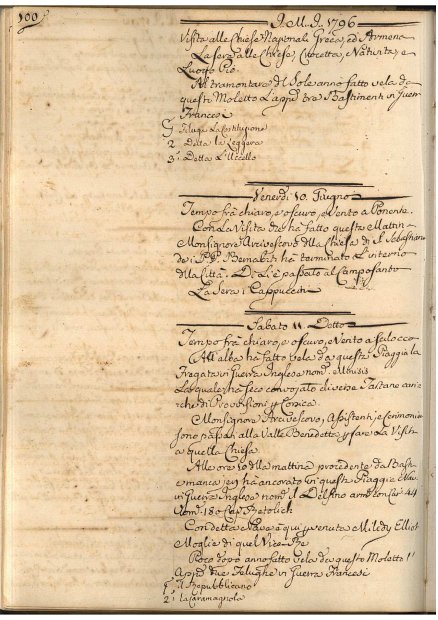 100
A. M. D. 1796
Visita alle Chiese Nazionali Greca, ed Armena
La sera alle Chiese, Crocetta, Natività, e
Luogo Pio
Al tramontare del Sole anno fatto vela da
questo Moletto tre Bastimenti in Guerra
Francesi
1ª Feluga La Costituzione
2. Detta la Leggera
3ª Detta L'Uccello
Venerdì 10. Giugno
Tempo frà chiaro, e oscuro, e Vento a Ponente.
Con La Visita che hà fatto questa Mattina
Monsignore Arcivescovo della Chiesa di S. Sebastiano
de i PP. Bernabiti hà terminato L'interio
della Città. Di Lì è passato al Camposanto
La Sera i Cappuccini
Sabato 11. Detto
Tempo frà chiaro, e oscuro, e Vento a Scilocco
All'alba hà fatto vela da questa Piaggia la
Fregata in Guerra Inglese nom.
La quale hà seco convojato diverse Tartane cari=
che di Provisioni p Corsica.
Monsignore Arcivescovo, Assistenti, e Cerimonie
sono passati alla Valle Benedetta p fare La Visita
a quella Chiesa.
Alle ore 10 della mattina procedente da Bast=
e manca hà ancorato in questa Piaggia Nave
in Guerra Inglese nom. il Delfino arm. con Can. 44
Uom. 180 Cap.
Con detta Nave è qui venuta Miledy Elliot
Moglie di quel Vice-Re
Poco dopo anno fatto vela da questo Moletto
due Felughe in Guerra Francesi
1ª il Republicano
2ª La Caramagnola